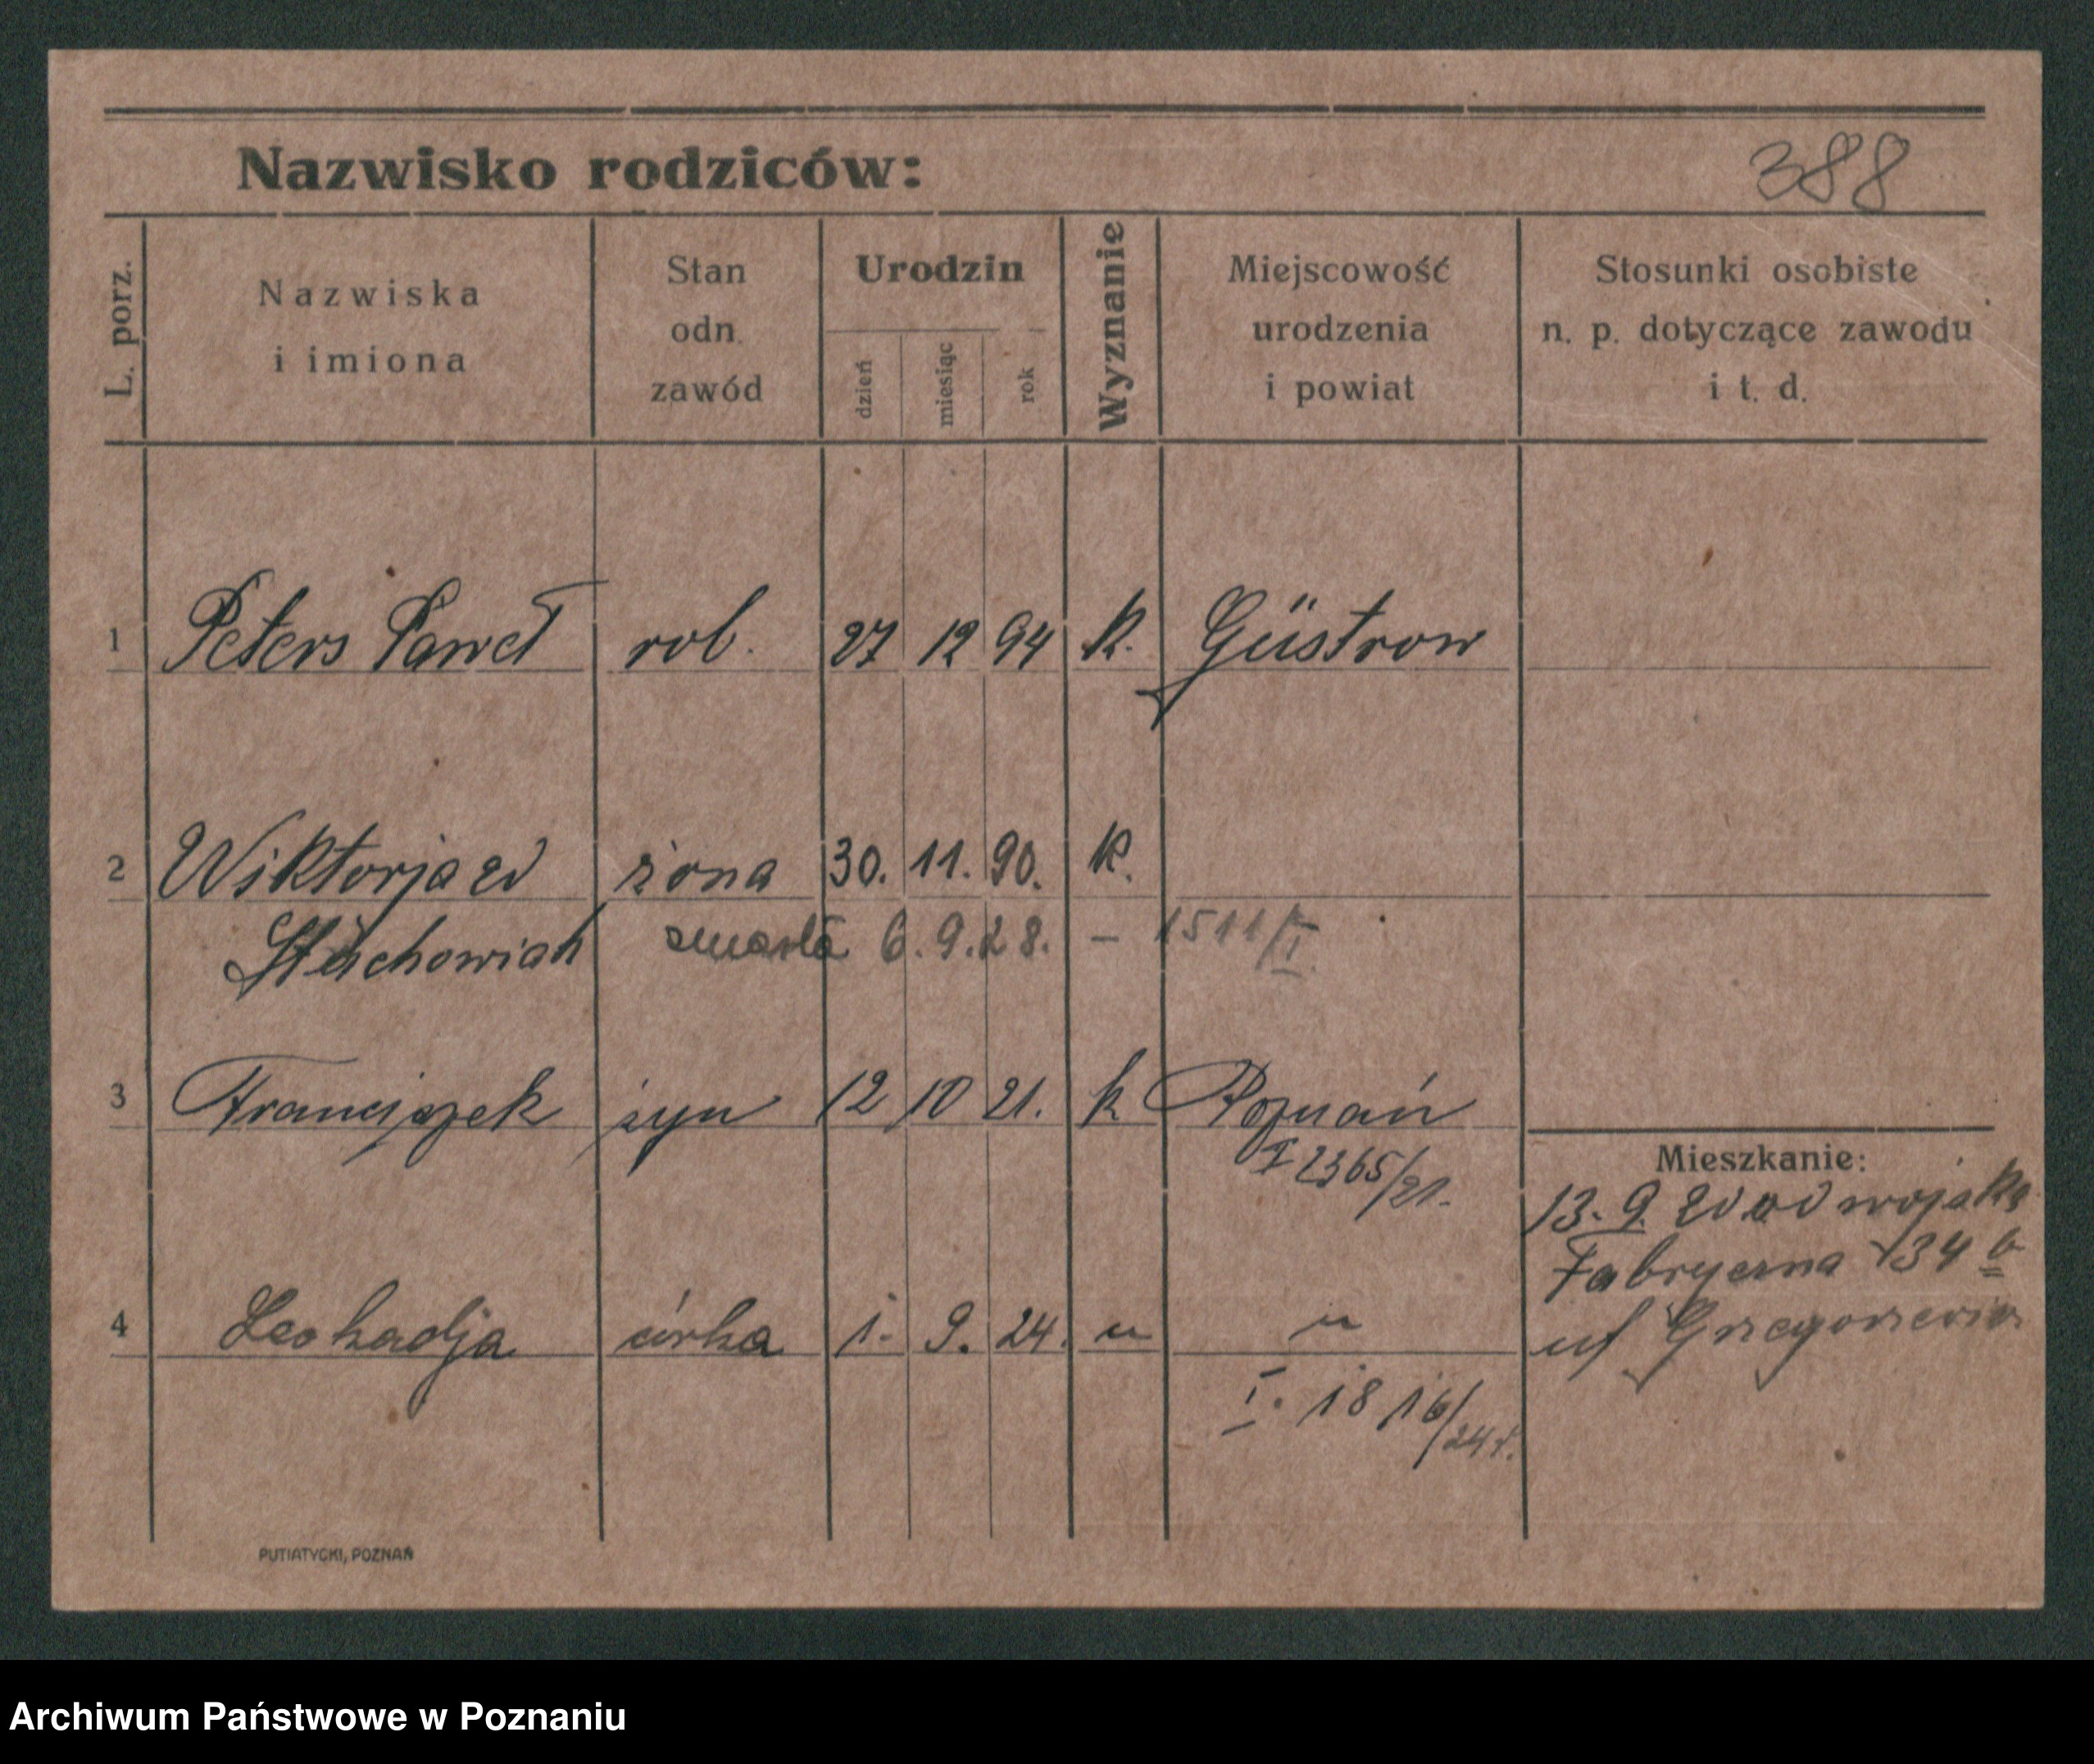 Nazwisko rodziców:
388
L. porz.
Nazwiska
i imiona
Stan
odn.
zawód
Urodzin
dzień
miesiąc
rok
Wyznanie
Miejscowość
urodzenia
i powiat
Stosunki osobiste
n. p. dotyczące zawodu
i t. d.
1 Peters Paweł rob. 27 12 94 k. Güstrow
2 Wiktorja zd żona 30. 11. 90. k.
Stachowiak zmarła 6. 9. 28. – 1511/I
3 Franciszek syn 12 10 21. k Poznań
I 2365/21.
Mieszkanie:
13. 9. 20 od wojska
Fabryczna 34 b
4 Leokadja córka 1. 9. 24. „ „
I. 1816/24 r.
PUTIATYCKI, POZNAŃ
Archiwum Państwowe w Poznaniu